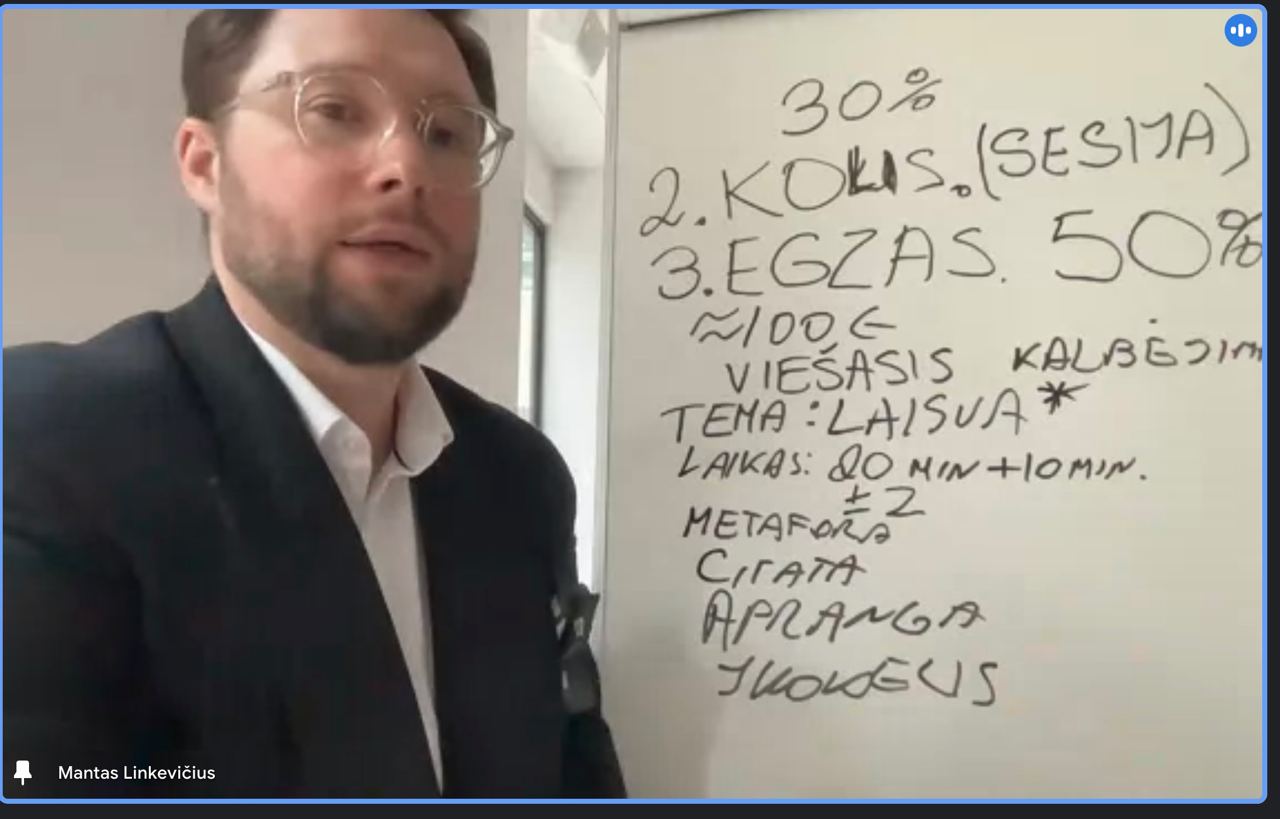 30%
2. KOLIS. (SESIJA)
3. EGZAS. 50%
≈100€
VIEŠASIS KALBĖJIM
TEMA: LAISVA*
LAIKAS: 20 MIN + 10 MIN.
± 2
METAFORA
CITATA
APRANGA
Mantas Linkevičius